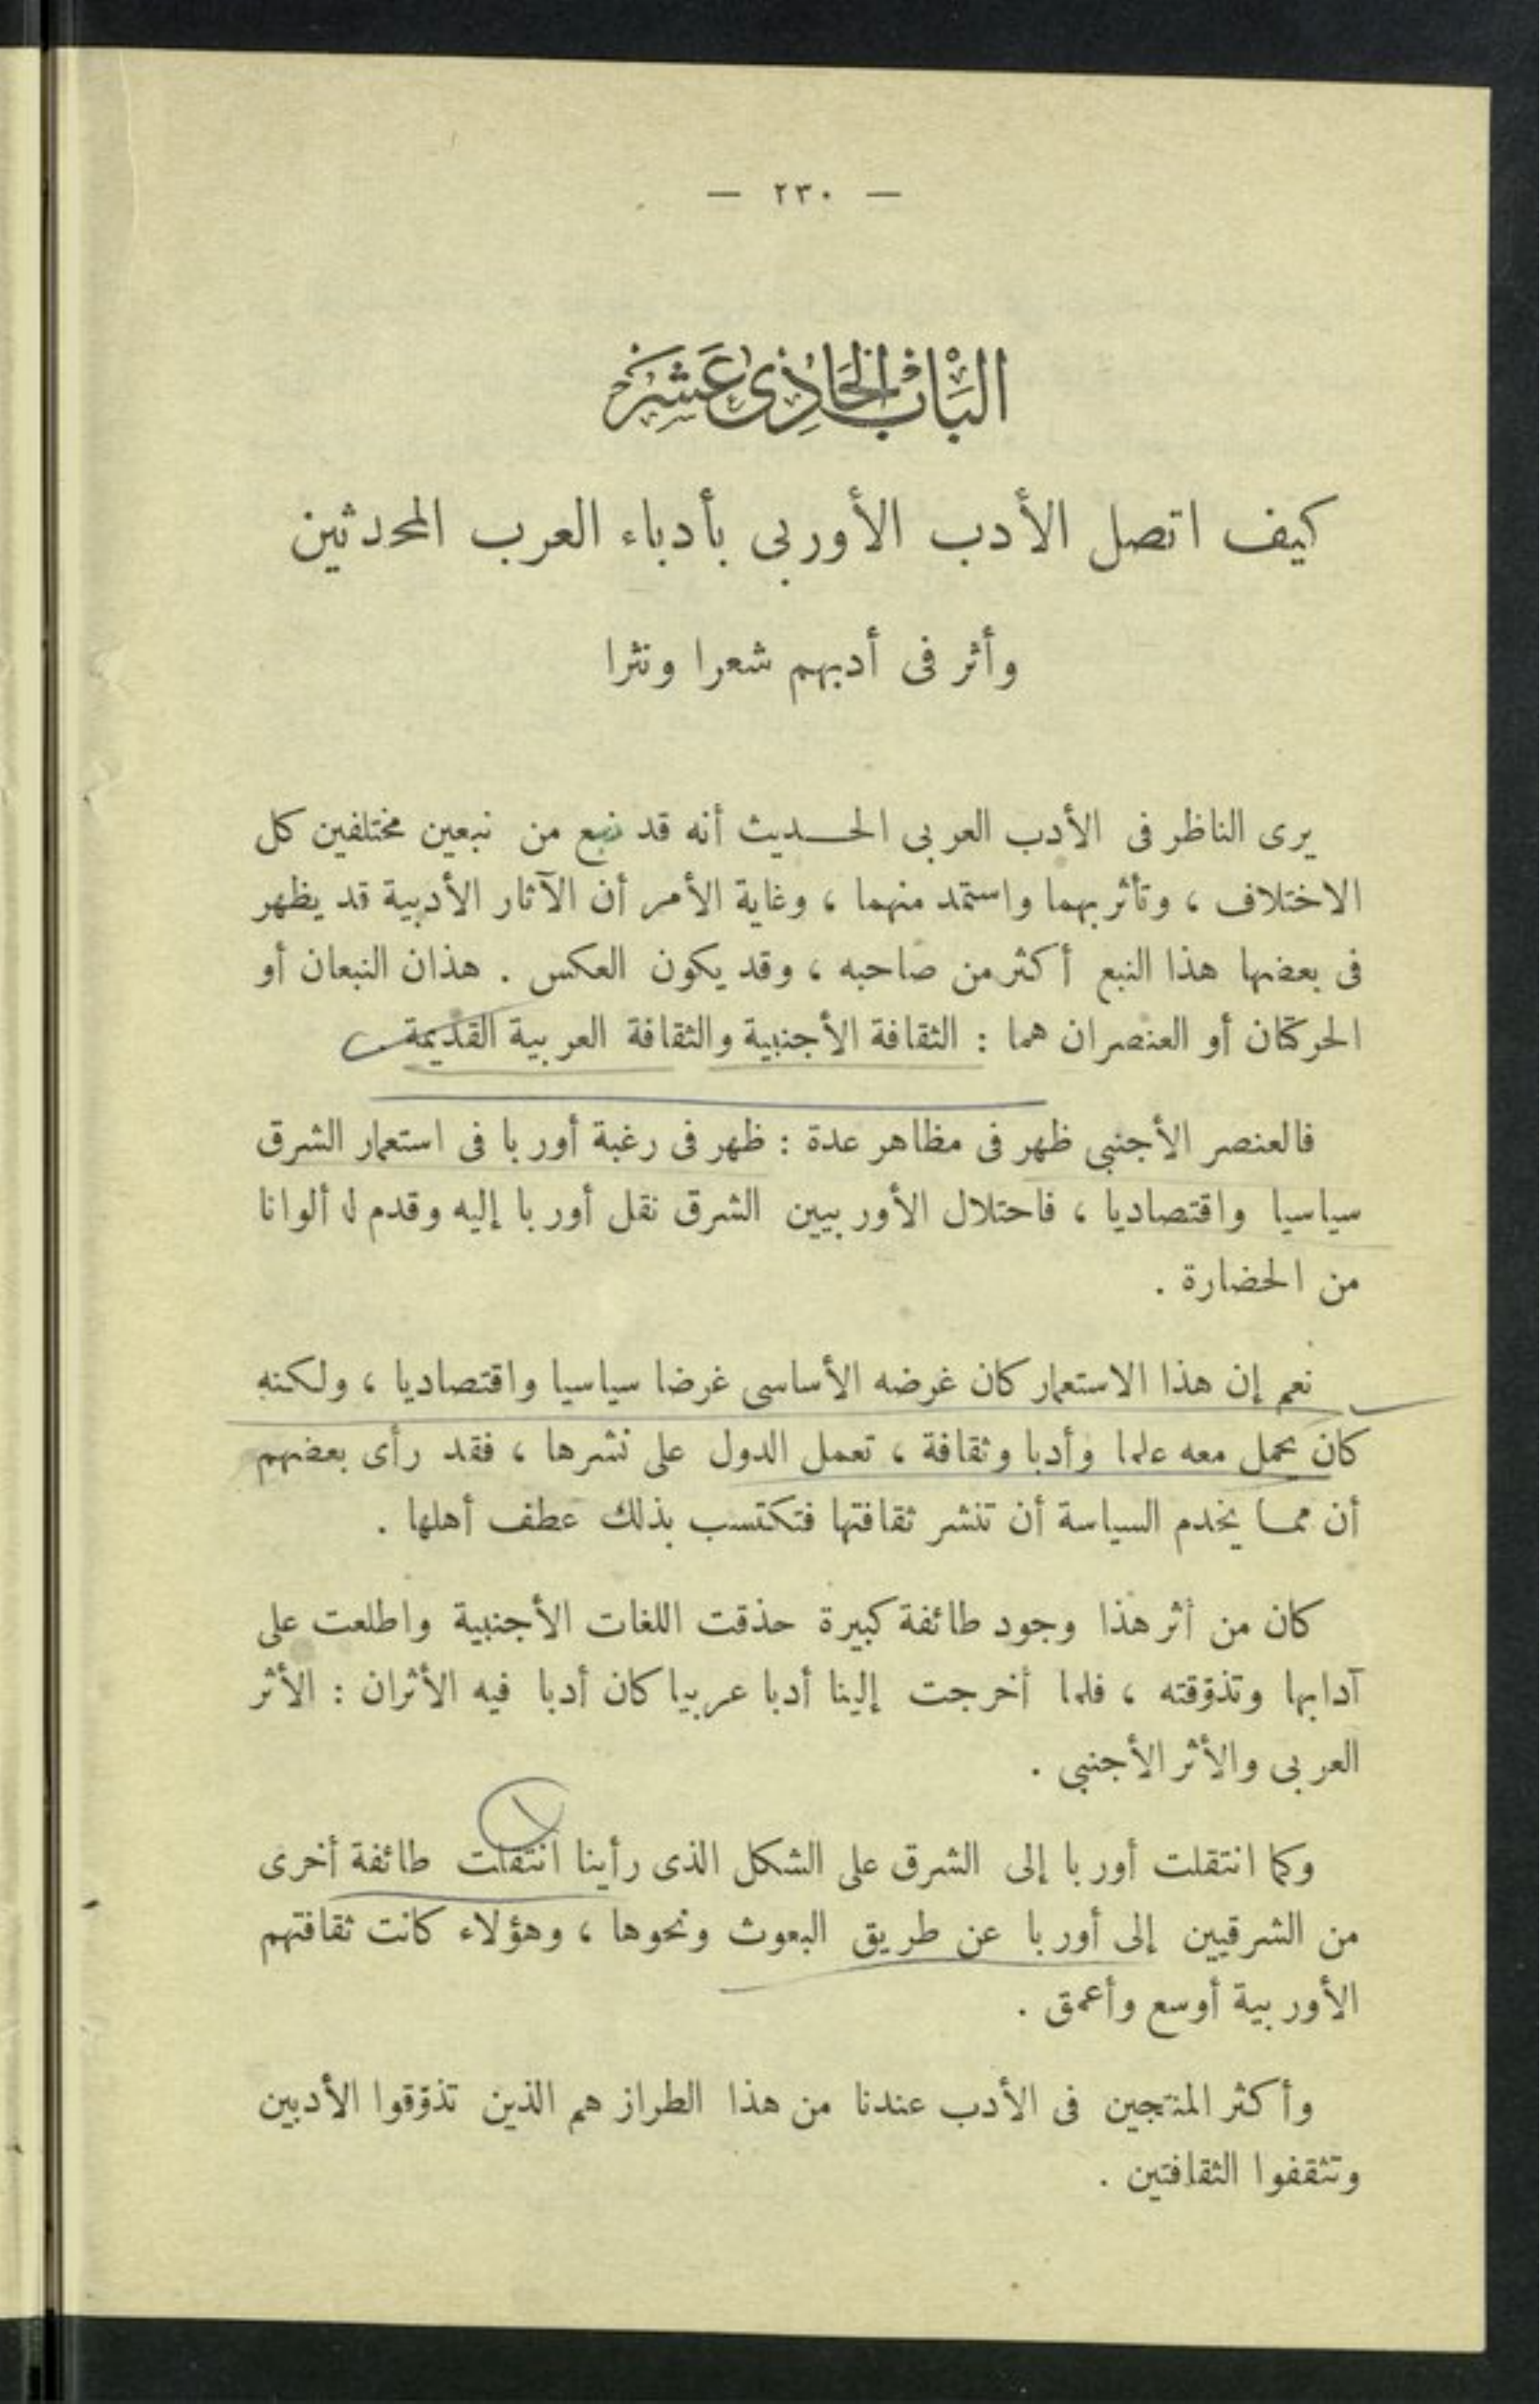 — ٢٣٠ —
الباب الحادى عشر
كيف اتصل الأدب الأوربى بأدباء العرب المحدثين
وأثر فى أدبهم شعرا ونثرا
يرى الناظر فى الأدب العربى الحديث أنه قد نبع من نبعين مختلفين كل
الاختلاف ، وتأثر بهما واستمد منهما ، وغاية الأمر أن الآثار الأدبية قد يظهر
فى بعضها هذا النبع أكثر من صاحبه ، وقد يكون العكس . هذان النبعان أو
الحركتان أو العنصران هما : الثقافة الأجنبية والثقافة العربية القديمة .
فالعنصر الأجنبى ظهر فى مظاهر عدة : ظهر فى رغبة أوربا فى استعمار الشرق
سياسيا واقتصاديا ، فاحتلال الأوربيين الشرق نقل أوربا إليه وقدم له ألوانا
من الحضارة .
نعم إن هذا الاستعمار كان غرضه الأساسى غرضا سياسيا واقتصاديا ، ولكنه
كان يحمل معه علما وأدبا وثقافة ، تعمل الدول على نشرها ، فقد رأى بعضهم
أن مما يخدم السياسة أن تنشر ثقافتها فتكتسب بذلك عطف أهلها .
كان من أثر هذا وجود طائفة كبيرة حذقت اللغات الأجنبية واطلعت على
آدابها وتذوّقته ، فلما أخرجت إلينا أدبا عربيا كان أدبا فيه الأثران : الأثر
العربى والأثر الأجنبى .
وكما انتقلت أوربا إلى الشرق على الشكل الذى رأينا انتقلت طائفة أخرى
من الشرقيين إلى أوربا عن طريق البعوث ونحوها ، وهؤلاء كانت ثقافتهم
الأوربية أوسع وأعمق .
وأكثر المنتجين فى الأدب عندنا من هذا الطراز هم الذين تذوّقوا الأدبين
وتثقفوا الثقافتين .